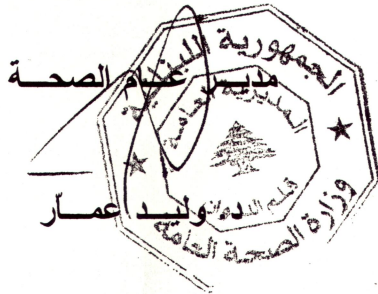 مديـر عـام الصحـة
د. وليـد عمـار
الجمهورية اللبنانية
وزارة الصحة العامة
المديرية العامة
قلم الديوان